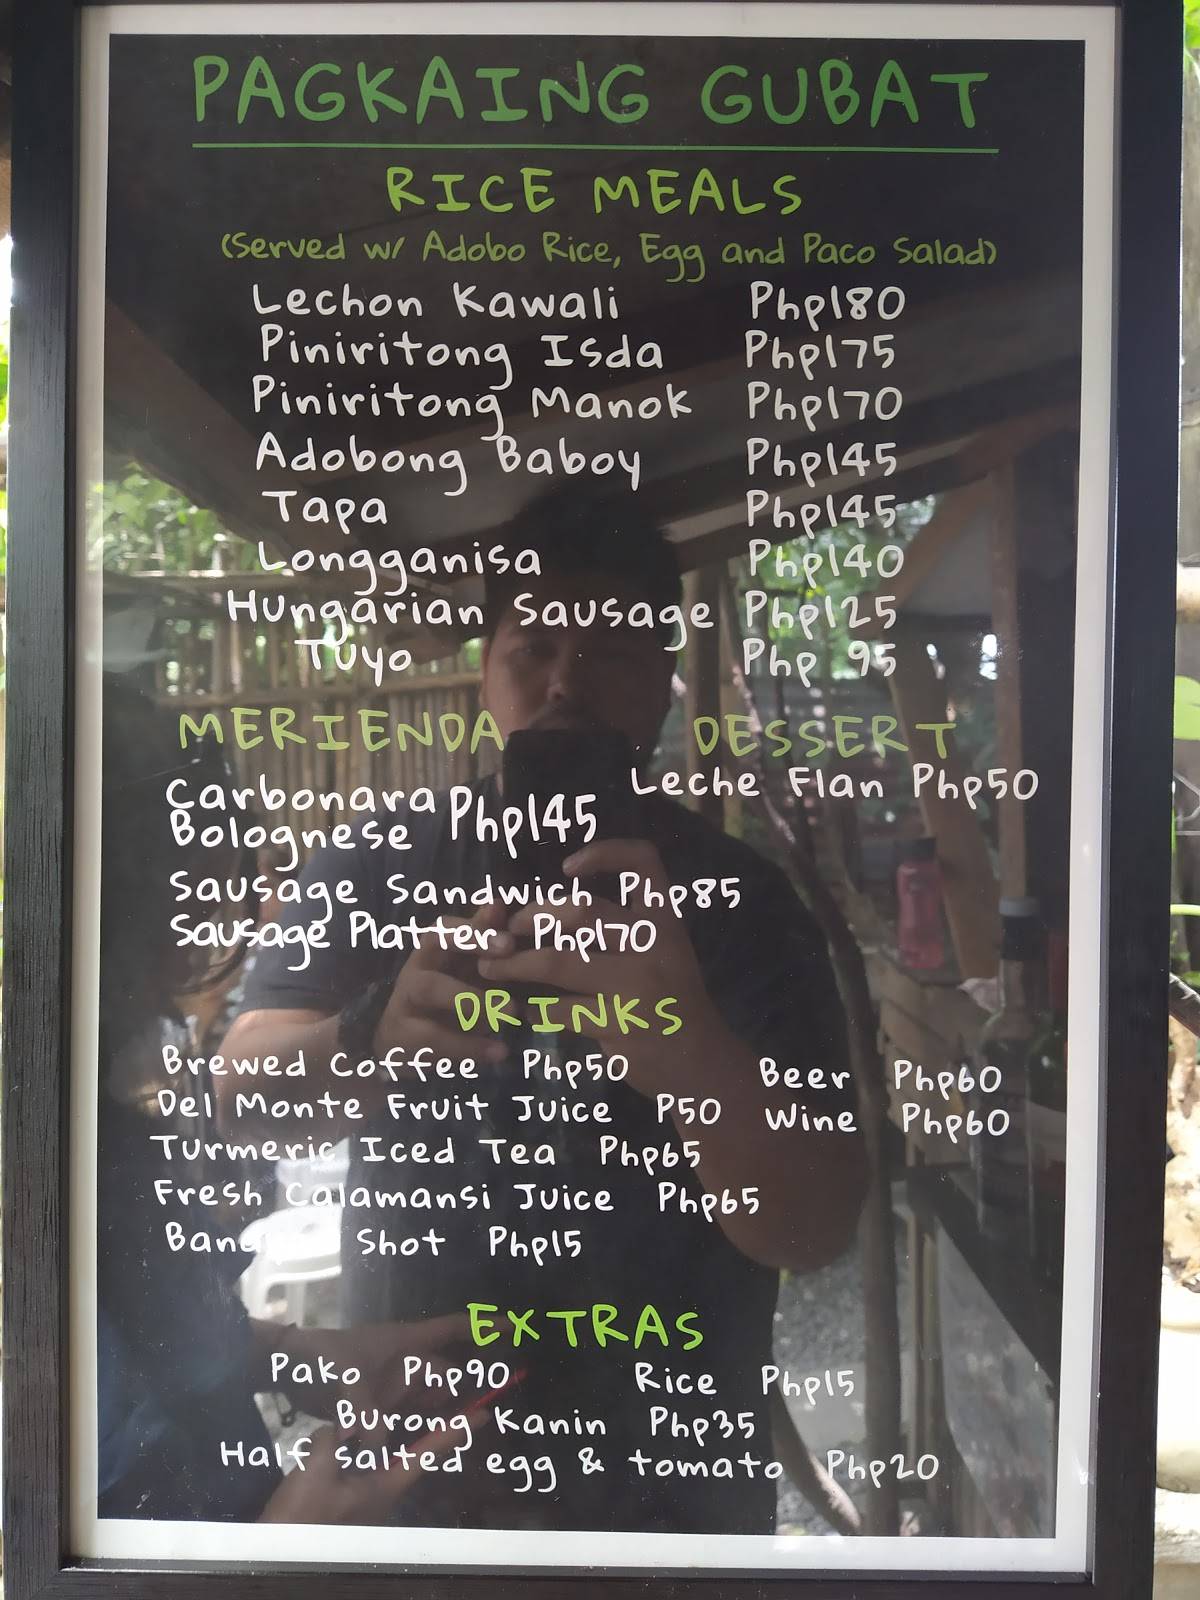 PAGKAING GUBAT
RICE MEALS
(Served w/ Adobo Rice, Egg and Paco Salad)
Lechon Kawali Php180
Piniritong Isda Php175
Piniritong Manok Php170
Adobong Baboy Php145
Tapa Php145
Longganisa Php140
Hungarian Sausage Php125
Tuyo Php 95
MERIENDA
Carbonara
Bolognese Php145
Sausage Sandwich Php85
Sausage Platter Php170
DESSERT
Leche Flan Php50
DRINKS
Brewed Coffee Php50
Del Monte Fruit Juice P50
Turmeric Iced Tea Php65
Fresh Calamansi Juice Php65
Shot Php15
Beer Php60
Wine Php60
EXTRAS
Pako Php90 Rice Php15
Burong Kanin Php35
Half salted egg & tomato Php20